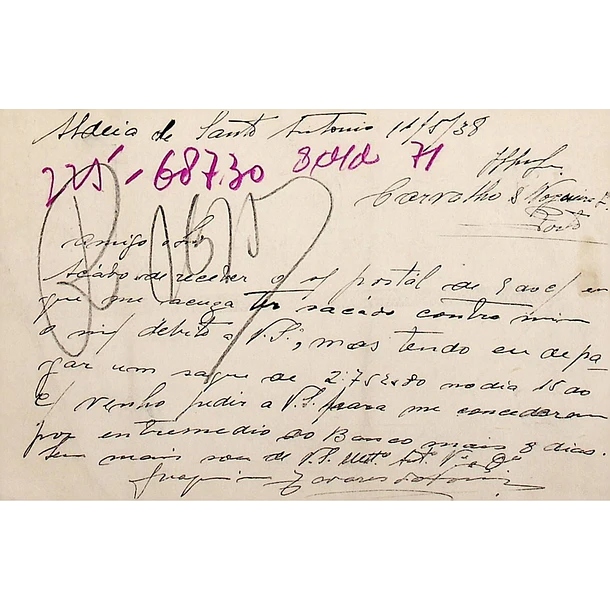 Aldeia de Santo Antonio 11/5/38
225 - 68730 Saldo 71
Carvalho & Nogueira
Porto
Amigo e Sr
Acabo de receber o s/ postal de 9 do c/ em
que me acuza ter sacado contra mim
o m/ debito a V.S.ª, mas tendo eu de pa-
gar um saque de 2:752$80 no dia 15 do
c/ venho pedir a V.S. para me concederem
por entremedio do Banco mais 8 dias.
Sem mais sou de V.S. Mtº Attº Vº
Joaquim Tavares